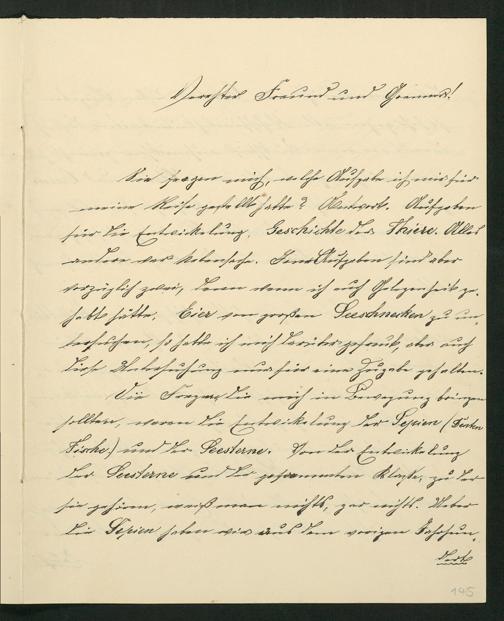 Verehrter Freund und Goennner!
Sie fragen mich, welche Aufgabe ich mir für
meine Reise gestellt hatte? Antwort. Aufgaben
für die Entwickelungs-Geschichte der Thiere. Alles
andere war Nebensache. Jener Aufgaben sind aber
vorzüglich zwei, denn wenn ich auch Gelegenheit ge-
habt hätte, Eier von großen Seeschnecken zu un-
tersuchen, so hätte ich mich darüber gefreut, aber auch
diese Untersuchung nur für eine Zugabe gehalten.
Die Fragen, die mich in Bewegung bringen
sollten, waren die Entwickelung der Sepien (Tinten
Fische) und der Seesterne. Von der Entwickelung
der Seesterne und der gesammten Klasse, zu der
sie gehören, weiß man nichts, gar nichts. Ueber
die Sepien haben wir aus dem vorigen Jahrhun-
dert
195